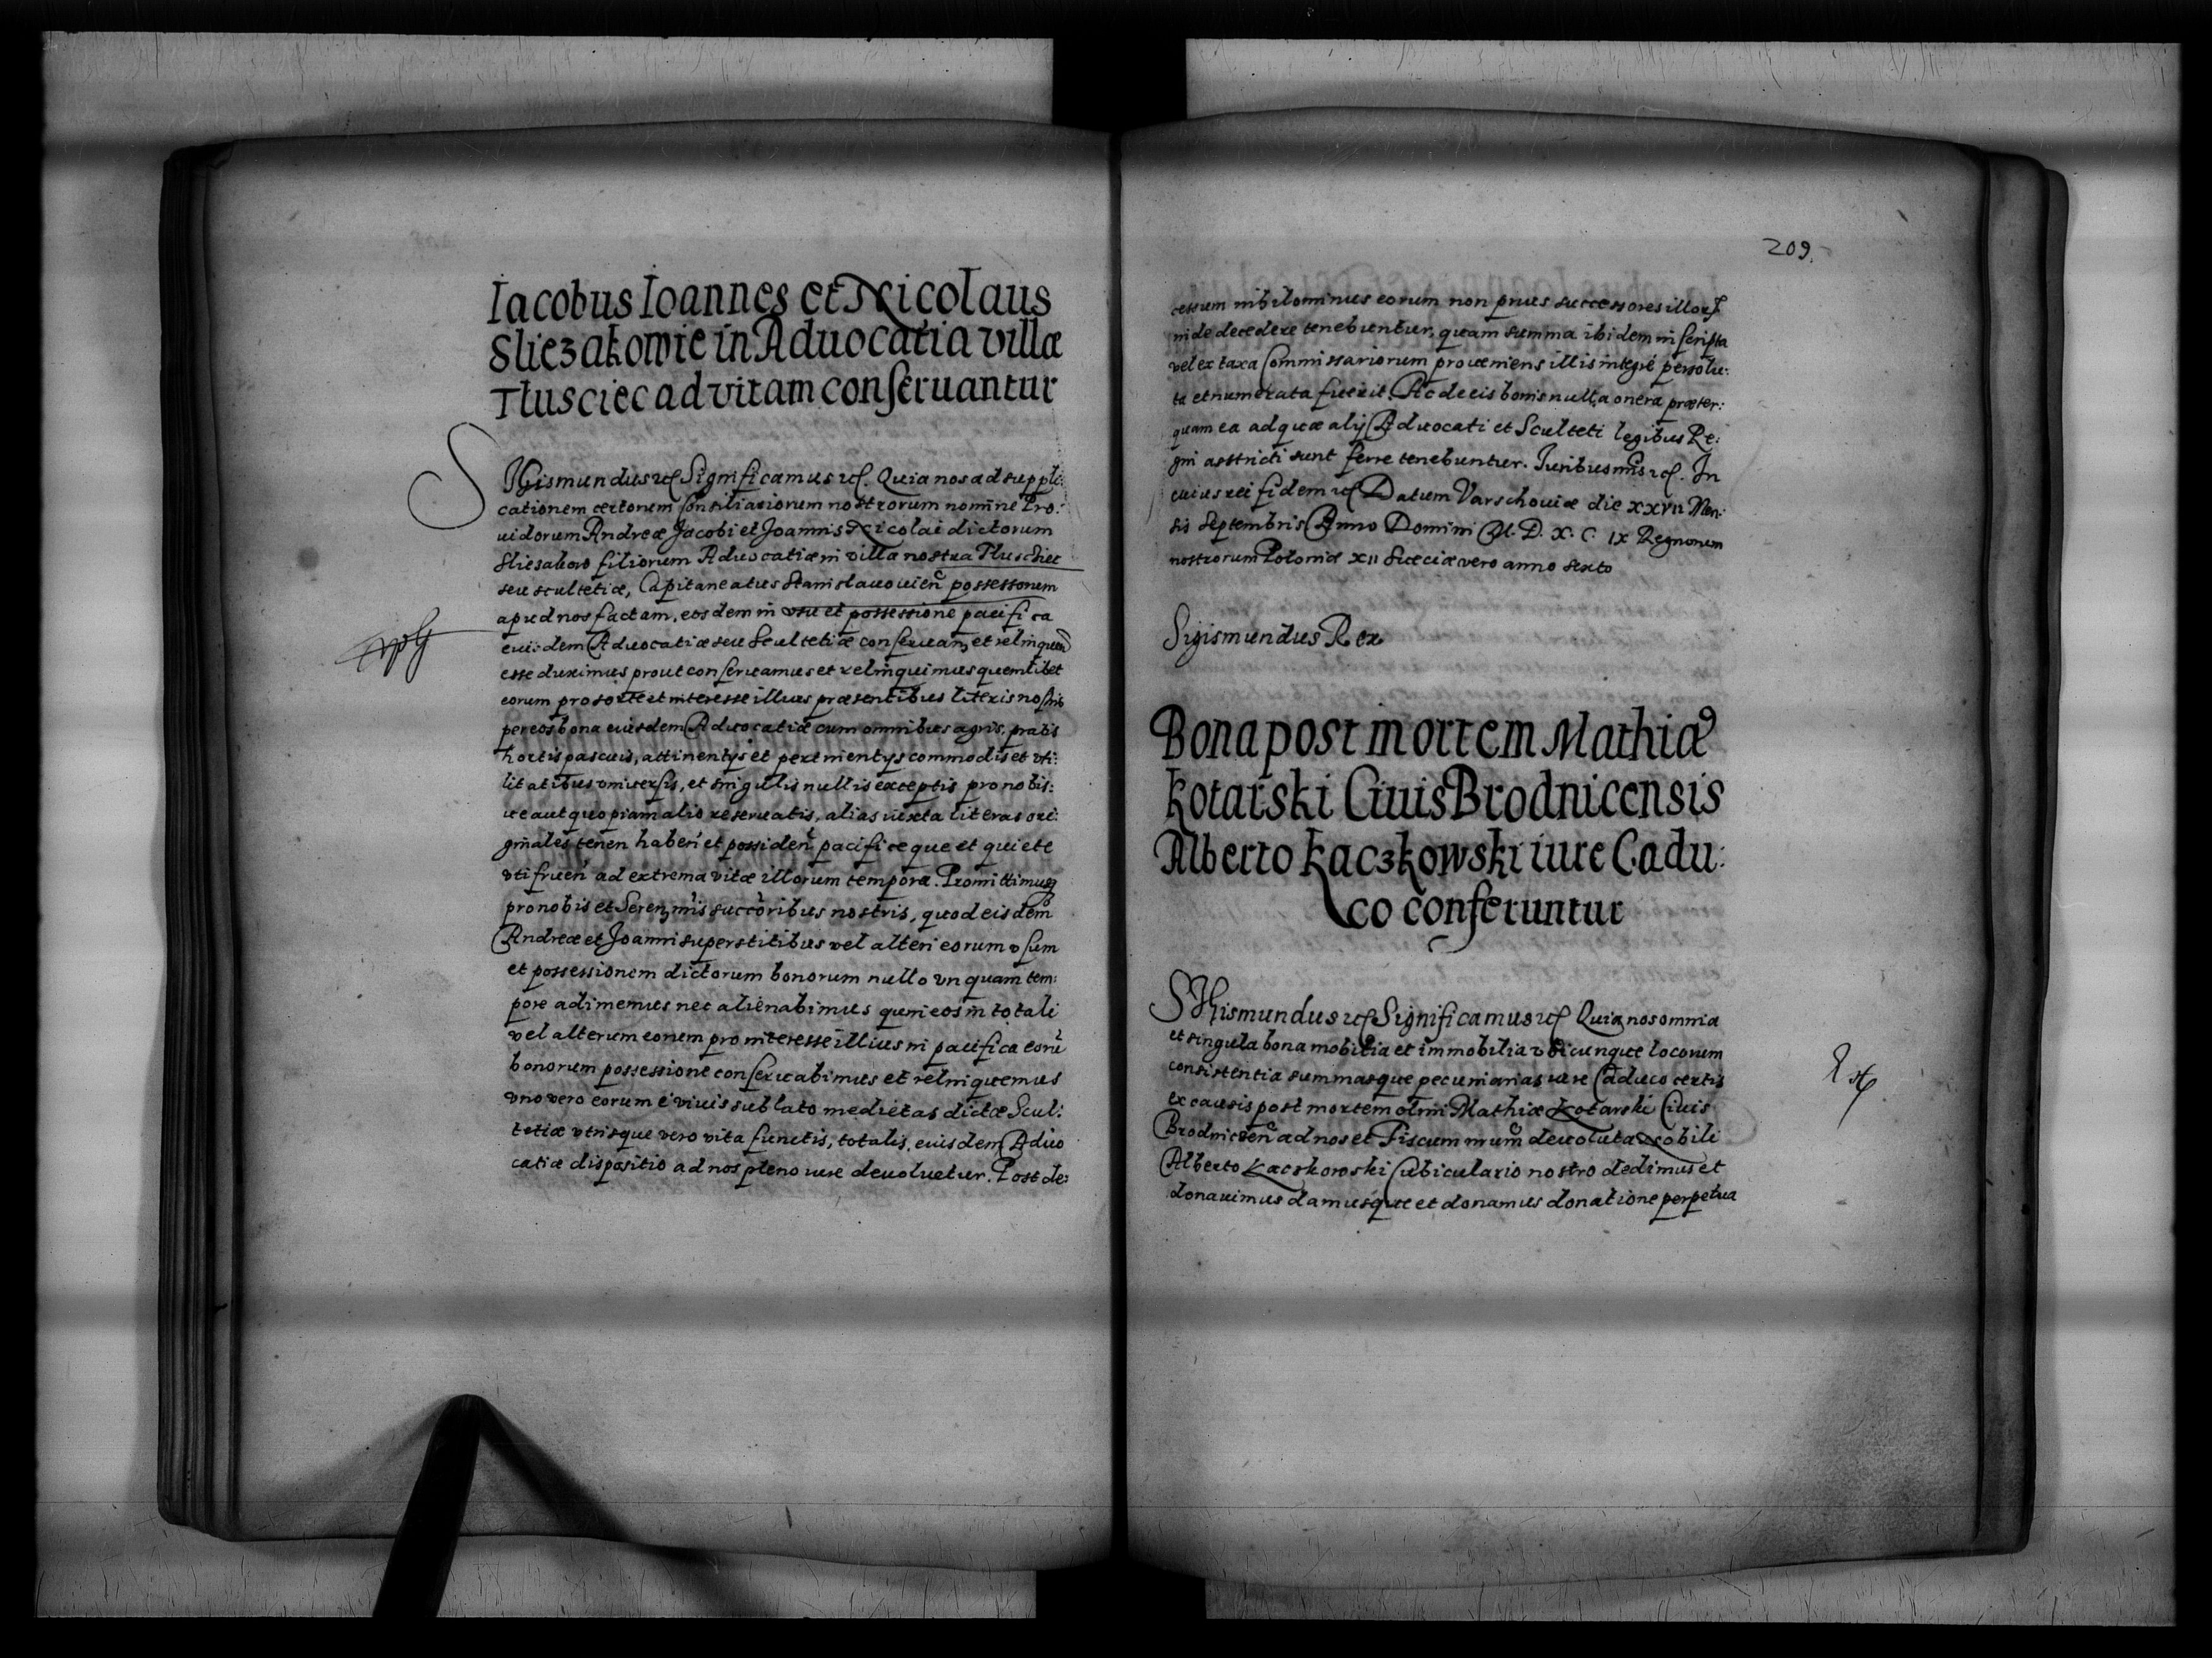 Iacobus Ioannes et Nicolaus
Sliezakowie in Aduocatia villæ
Tłusciec ad vitam conseruantur
SIgismundus etc Significamus etc. Quia nos ad suppli:
cationem certorum Consiliariorum nostrorum nomine Pro:
uidorum Andreæ Jacobi et Joannis Nicolai dictorum
Sliezakow filiorum Aduocatiæ in villa nostra Tluschiec
seu scultetiæ, Capitaneatus Stanislauouien possessorum
apud nos factam, eosdem in vsu et possessione pacifica
eiusdem Aduocatiæ seu Scultetiæ conseruan et relinquen
esse duximus prout conseruamus et relinquimus quemlibet
eorum pro sorte et interesse illius præsentibus literis nostris
per eos bona eiusdem Aduocatiæ cum omnibus agris, pratis
hortis pascuis, attinentijs et pertinentijs commodis et vti:
litatibus vniuersis, et singulis nullis exceptis pro nobis:
ue aut quopiam alio reseruatis, alias iuxta literas ori:
ginales tenen haben et possiden pacifice que et quiete
vti fruen ad extrema vitæ illorum tempora. Promittimusq
pro nobis et Seren mis succoribus nostris, quod eisdem
Andreæ et Joanni superstitibus vel alteri eorum vsum
et possessionem dictorum bonorum nullo vnquam tem:
pore adimemus nec alienabimus quin eos in totali
vel alterum eorum pro interesse illius in pacifica eorū
bonorum possessione conseruabimus et relinquemus
vno vero eorum e viuis sublato medietas dictæ Scul:
tetiæ vtrisque vero vita functis, totalis, eiusdem Aduo
catiæ dispositio ad nos pleno iure deuoluetur. Post de:
209.
cessum nihilominus eorum non prius successores illor
inde decedere tenebuntur, quam summa ibidem inscripta
vel ex taxa Commissariorum proueniens illis integre persolu:
ta et numerata fuerit. Ac de eis bonis nulla onera præter:
quam ea ad quæ alij Aduocati et Sculteti legibus Re:
gni asstricti sunt ferre tenebuntur. Iuribus nris etc. In
cuius rei fidem etc Datum Varschouiæ die XXVII Men:
sis Septembris Anno Domini M. D. X. C. IX Regnorum
nostrorum Poloniæ XII Sueciæ vero anno sexto
Sigismundus Rex
Bona post mortem Mathiæ
Kotarski Ciuis Brodnicensis
Alberto Kaczkowski iure Cadu:
co conferuntur
SIgismundus etc Significamus etc Quia nos omnia
et singula bona mobilia et immobilia vbicunque locorum
consistentia summasque pecuniarias iure Caduco certis
ex causis post mortem olim Mathiæ Kotarski Ciuis
Brodnicen ad nos et Fiscum nrum deuoluta Nobili
Alberto Kaczkowski Cubiculario nostro dedimus et
donauimus damusque et donamus donatione perpetua